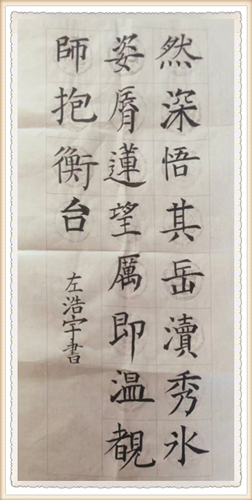 然深悟其岳瀆秀冰
姿脣蓮望厲即温覩
師抱衡台
左浩宇書